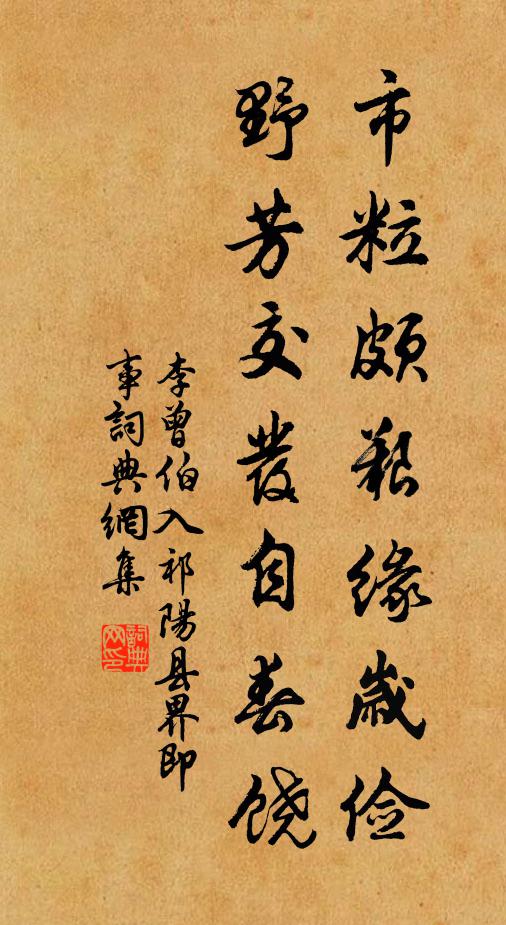 市粒頗艱缘歳儉
野芳交發自春饒
李曾伯入祁陽县界即
事詞典網集
詞典
网印